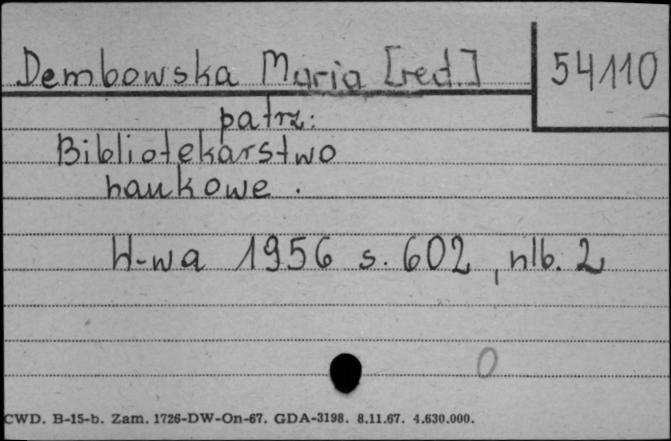 Dembowska Maria [red.] 54110
patrz:
Bibliotekarstwo
naukowe.
W-wa 1956 s. 602, nlb. 2
0
CWD. B-15-b. Zam. 1726-DW-On-67. GDA-3198. 8.11.67. 4.630.000.